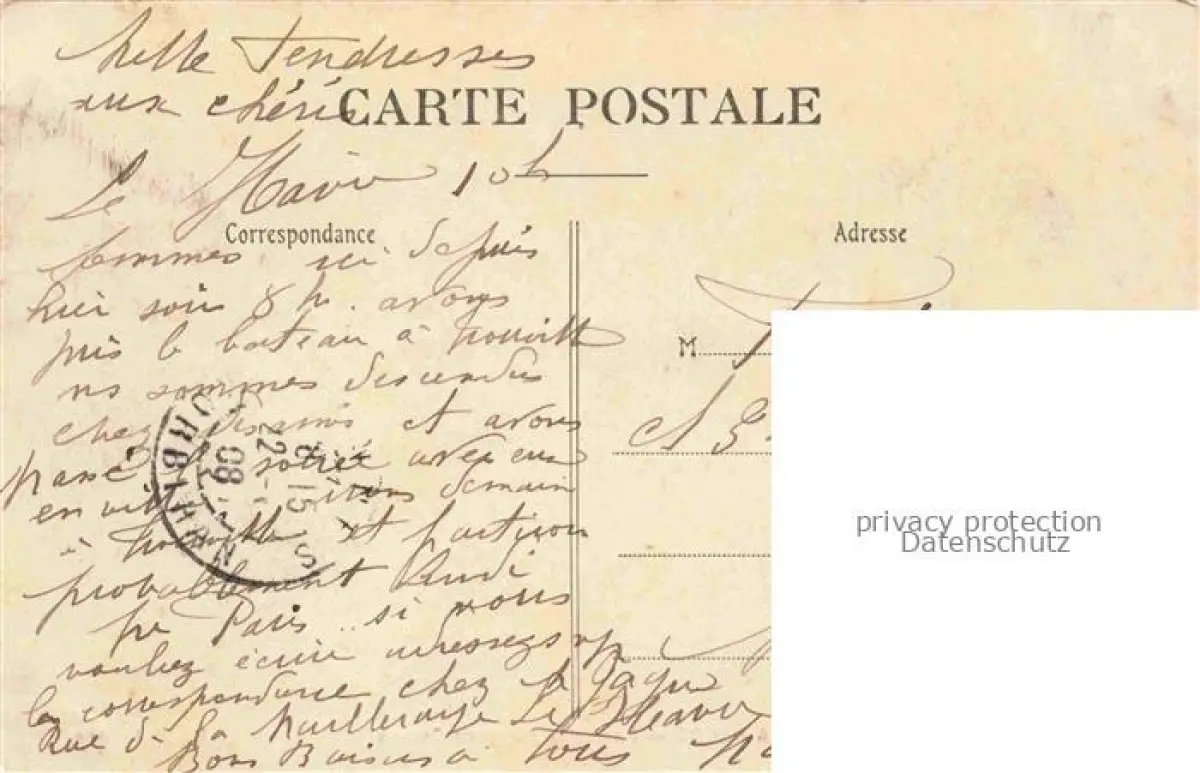 Mille tendresses
aux chéris
CARTE POSTALE
Le Havre 10h
Correspondance
Sommes ici depuis
hier soir 8 h. avons
pris le bateau à Trouville
ns sommes descendus
chez des amis et avons
passé la soirée avec eux
en ville demain
à Trouville et partirons
probablement Lundi
pr Paris.. si vous
voulez écrire adressez
la correspondance chez
Rue de la Mailleraye Le Havre
Bons Baisers à tous
Adresse
M
et
MORBIHAN
8 15
22
08
privacy protection
Datenschutz